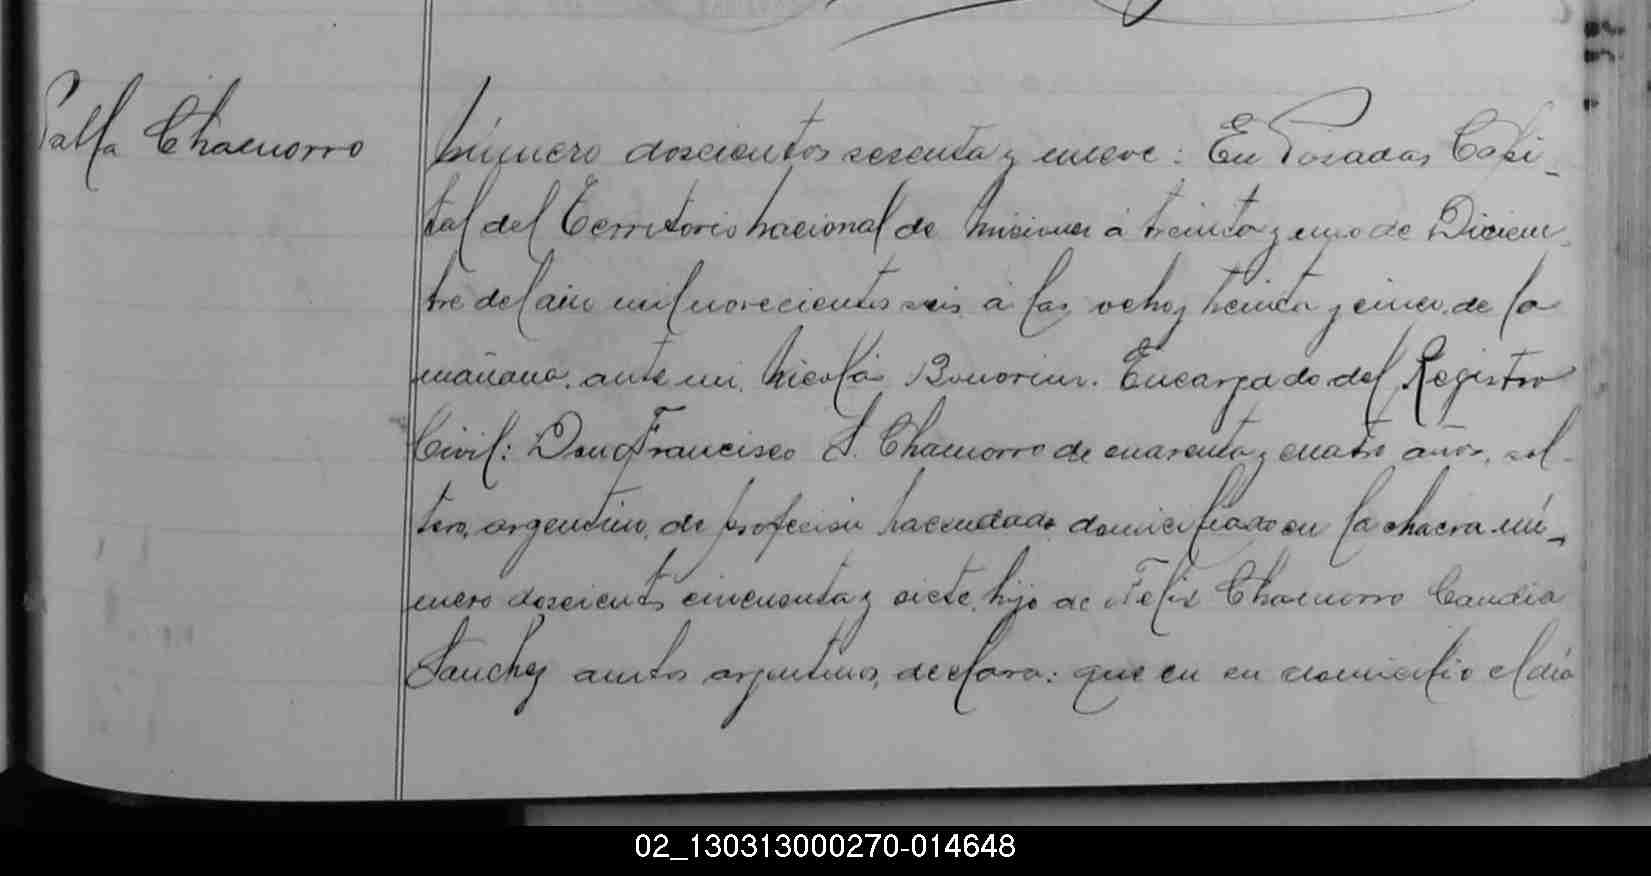 Chamorro
Número doscientos sesenta y nueve: En Posadas, Capi-
tal del Territorio Nacional de Misiones á treinta y uno de Diciem-
bre del año mil novecientos seis á las ocho y treinta y cinco de la
mañana, ante mi, Nicolás Bonorino. Encargado del Registro
Civil: Don Francisco S. Chamorro de cuarenta y cuatro años, sol-
tero, argentino, de profecion hacendado domiciliado en la chacra nú-
mero doscientos cincuenta y siete, hijo de Felix Chamorro Candia
Sanchez ambos argentinos, declara: que en su domicilio el dia
02_130313000270-014648